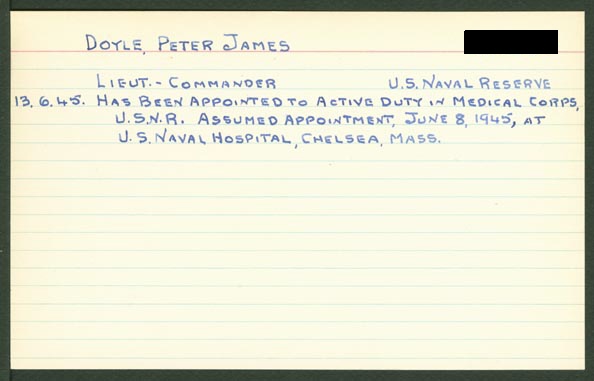 DOYLE, PETER JAMES
LIEUT.- COMMANDER U.S. NAVAL RESERVE
13.6.45. HAS BEEN APPOINTED TO ACTIVE DUTY IN MEDICAL CORPS,
U.S.N.R. ASSUMED APPOINTMENT, JUNE 8, 1945, AT
U.S. NAVAL HOSPITAL, CHELSEA, MASS.